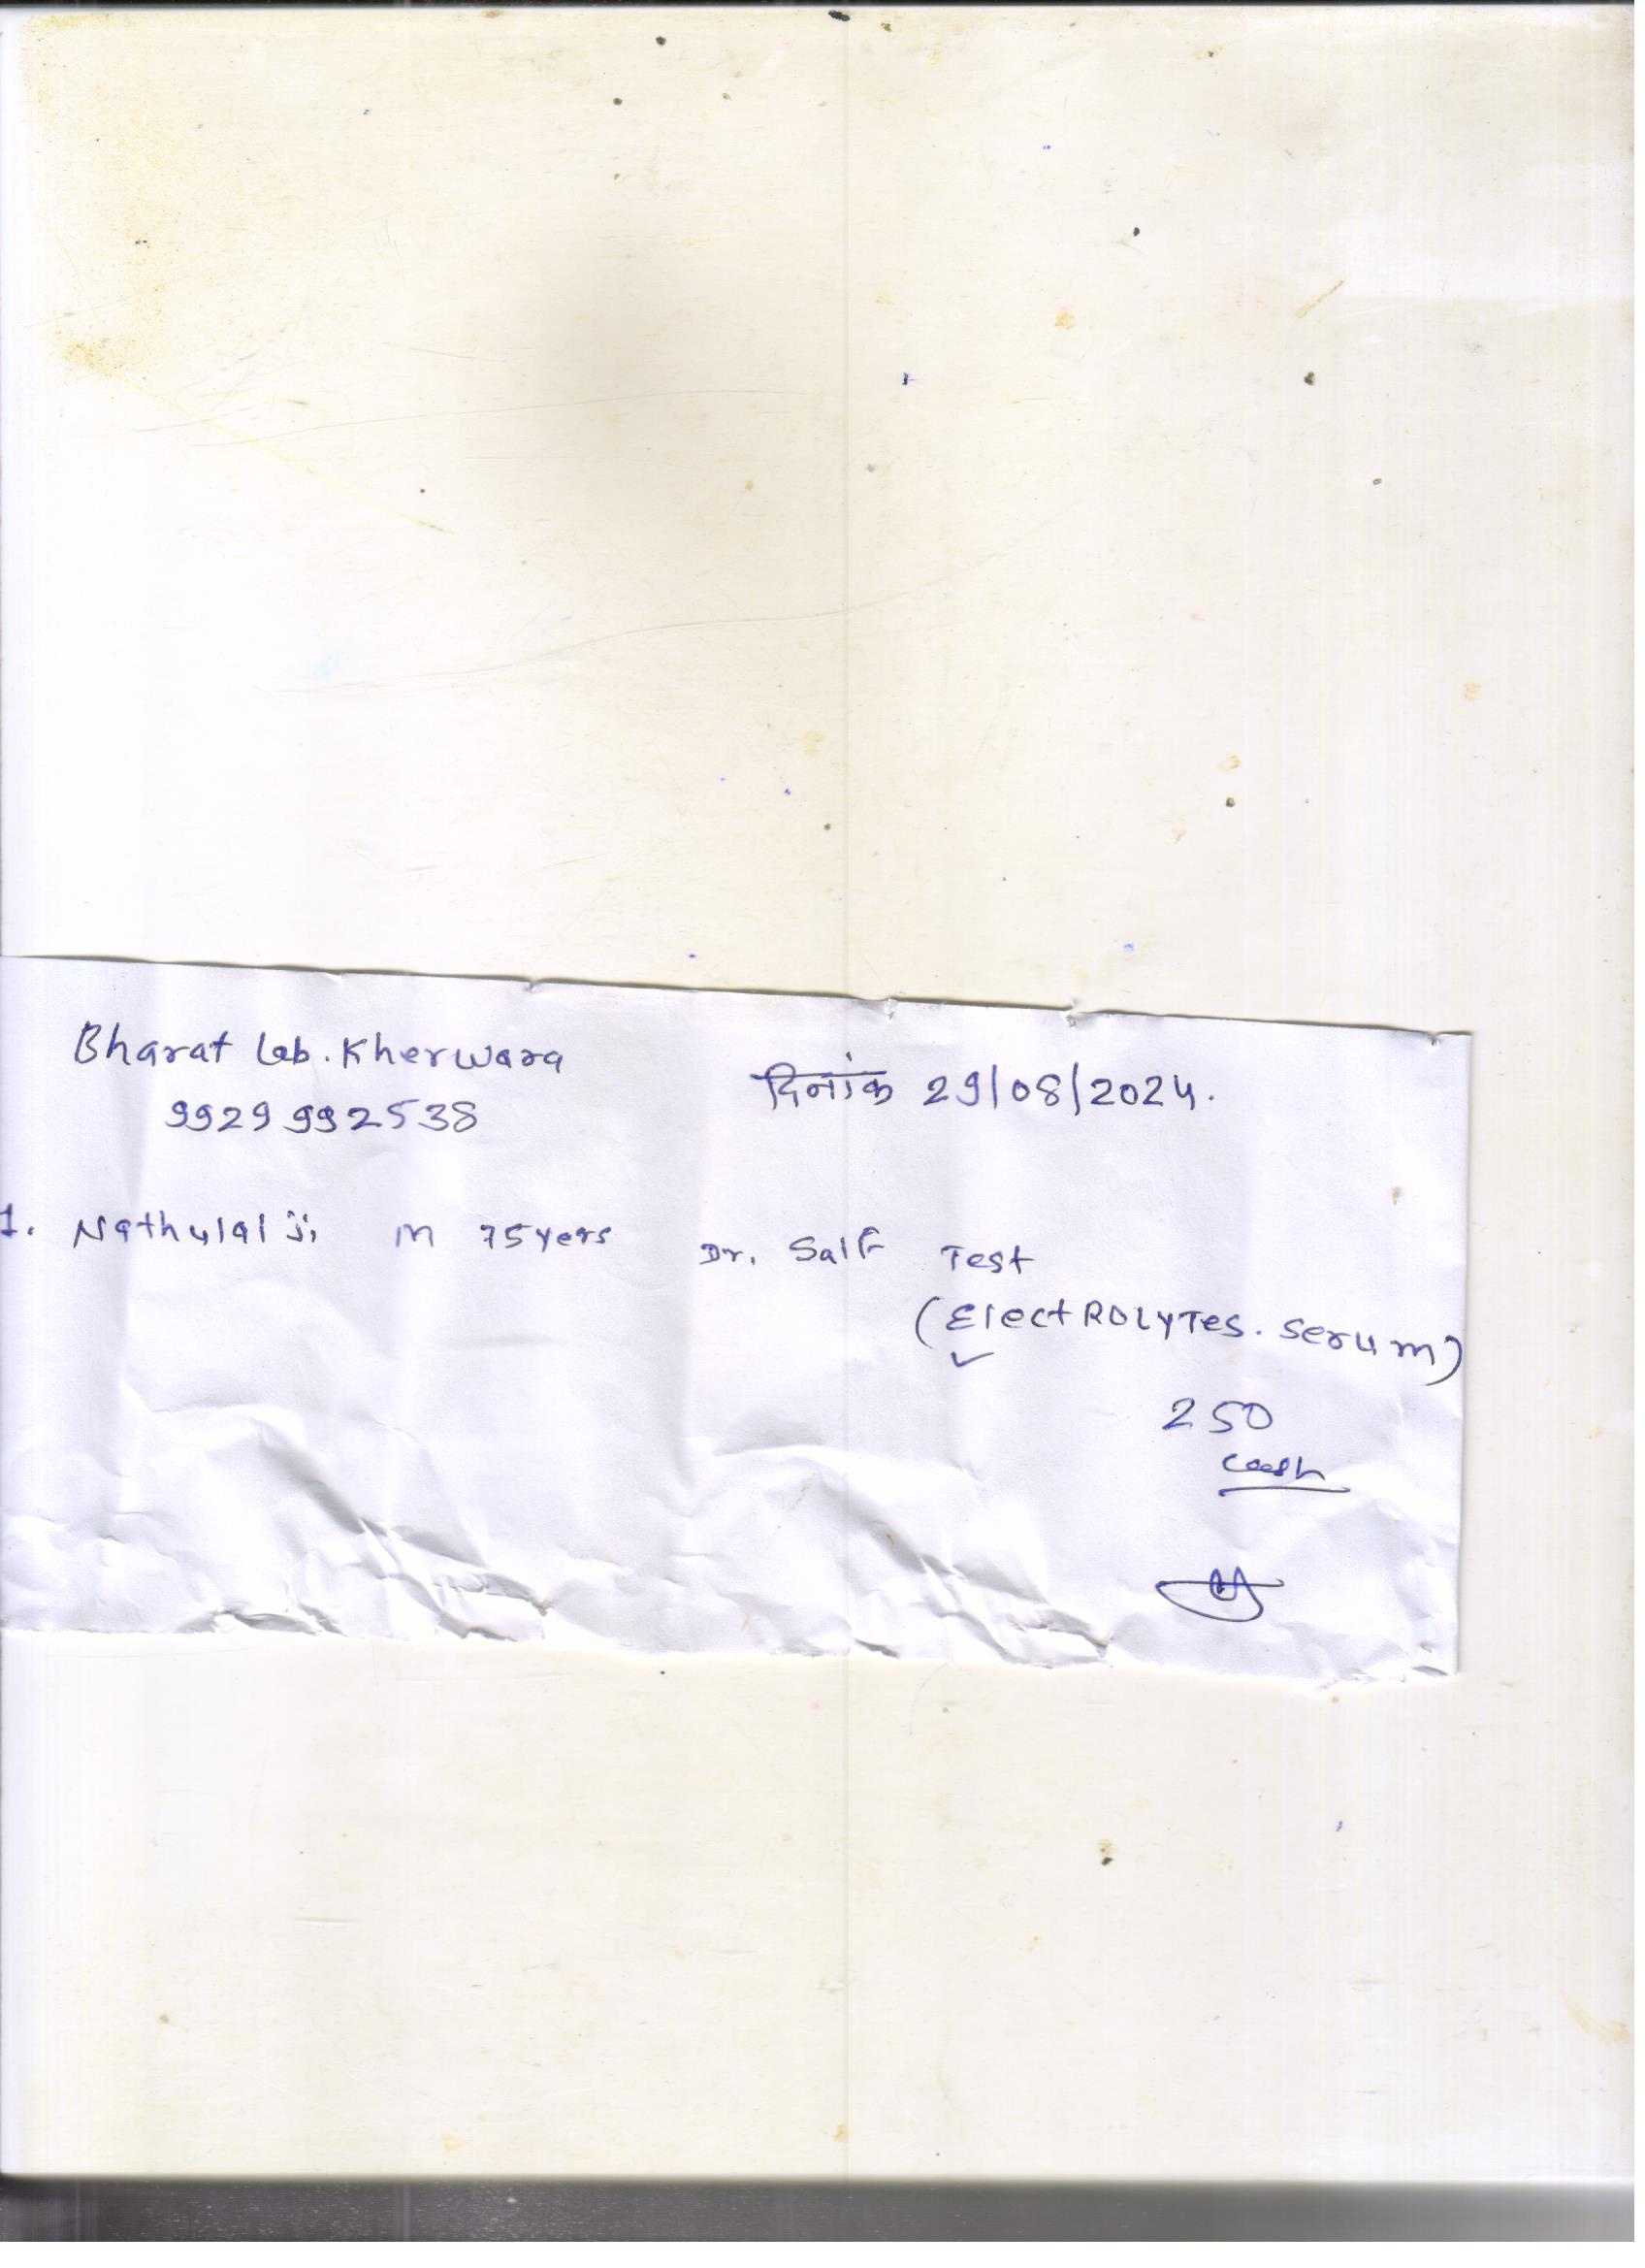 Bharat Lab. Kherwara
9929 992538
दिनांक 29/08/2024.
1. Nathulal Ji M 75 yers Dr. Salf Test
(Electrolytes. Serum)
250
Cash